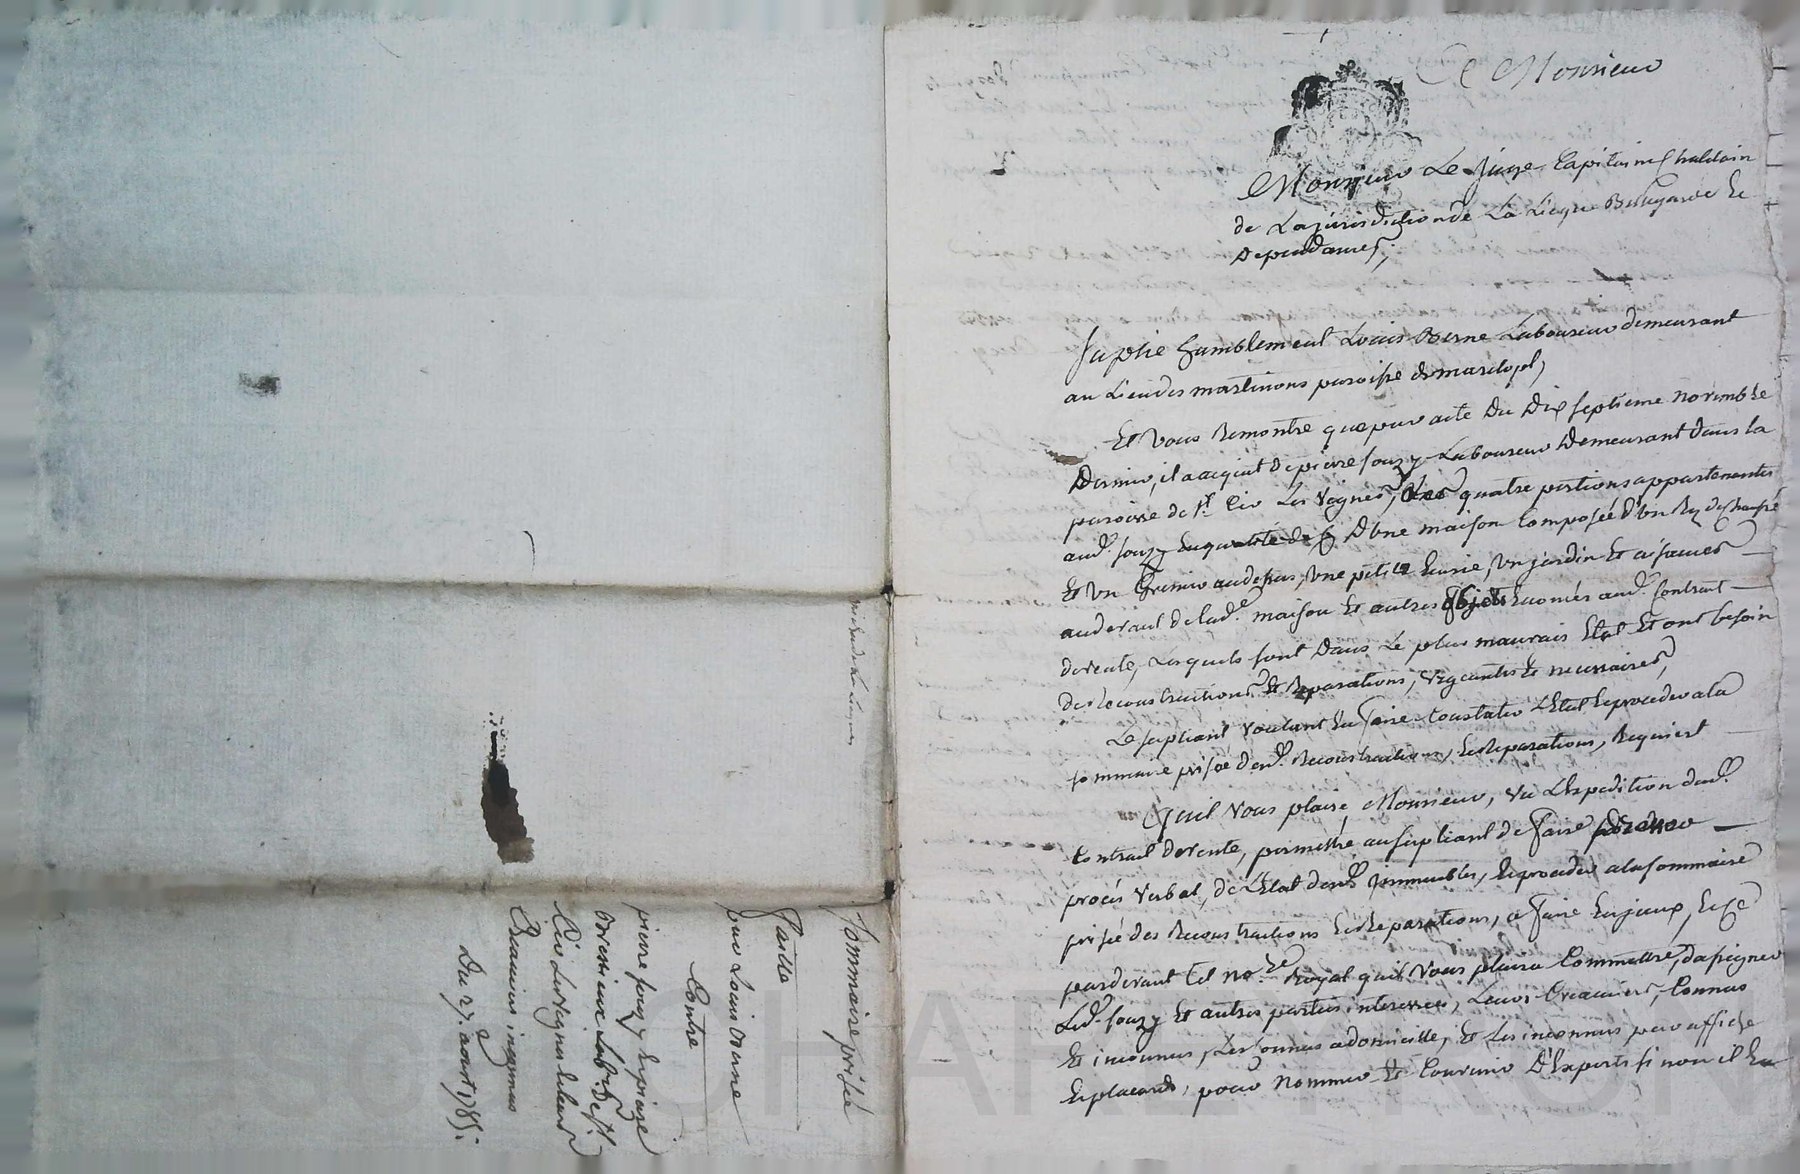 Monsieur
Monsieur Le Juge Capitaine Chatelain
de La jurisdiction de La Liegue Bellegarde Et
Dependances,
Suplie humblement Louis Verne Laboureur demeurant
au Lieu des martinons paroisse de marclopt,
Et Vous Remontre que par acte Du Dix septieme novembre
Dernier, il a acquit de pierre Souzy Laboureur Demeurant dans la
paroisse de St. Cir Les Vignes, quatre portions appartenantes
aud. Souzy D'une maison Composée d'un Rez de chaussé
Et Un Grenier au dessus, Une petite Ecurie, Un jardin Et aisances
au devant de lad.e maison Et autres objets Enoncés aud. Contrat
de vente, Lesquels sont Dans Le plus mauvais Etat Et ont besoin
de Reconstructions Et Reparations, Urgentes Et necessaires,
Le supliant Voulant En faire Constater L'Etat Et proceder a la
sommaire prisée desd. Reconstructions, Et Reparations, Requiert
Qu'il Vous plaise, Monsieur, Vu L'Expedition dud.
Contrat de vente, permettre au supliant de faire dresser
procés Verbal, de L'Etat desd. Immeubles, Et proceder a la sommaire
prisée des Reconstructions Et Reparations, a faire En jceux, Et ce
pardevant tel no.re Royal qu'il Vous plaira Commettre, d'assigner
Led. Souzy Et autres parties interessées, Leurs Creanciers, Connus
Et inconnus, Les Connus a domicille, Et Les inconnus par affiche
Et placard, pour nommer Et Convenir D'Experts si non il En
Sommaire prisée
faitte
par Louis Verne
Contre
pierre Souzy Epinaze
Verrieux Lab.rs De St.
Cir Les Vignes Et leurs
Creanciers inconnus
Du 27. aout 1785.